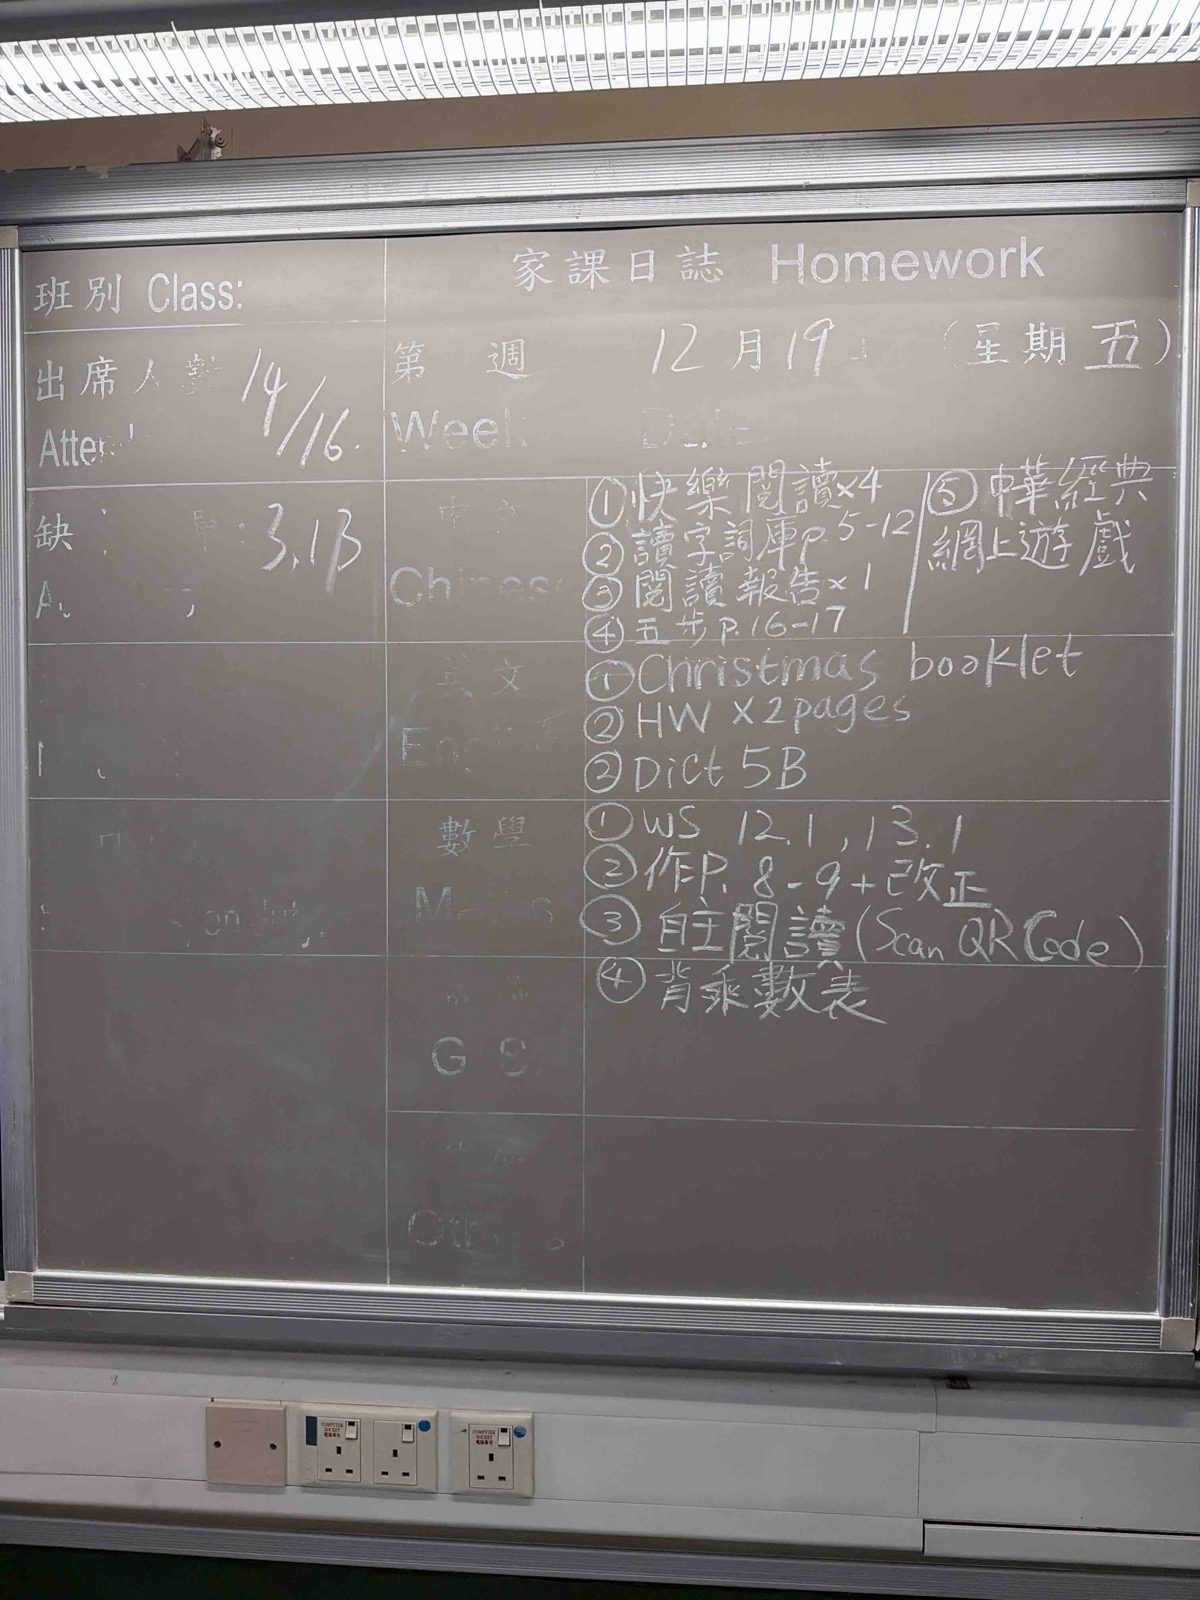 家課日誌 Homework
班別 Class:
出席人數 14/16.
第 週 12月19 (星期五)
Week
缺 3,13
中文
Chinese
①快樂閱讀x4
②讀字詞庫p.5-12
③閱讀報告x1
④五步p.16-17
⑤中華經典
網上遊戲
英文
①Christmas booklet
②HW x2pages
②Dict 5B
數學
①WS 12.1,13.1
②作P.8-9+改正
③自主閱讀(Scan QR Code)
④背乘數表
G S
COMPUTER
SOCKET
COMPUTER
SOCKET